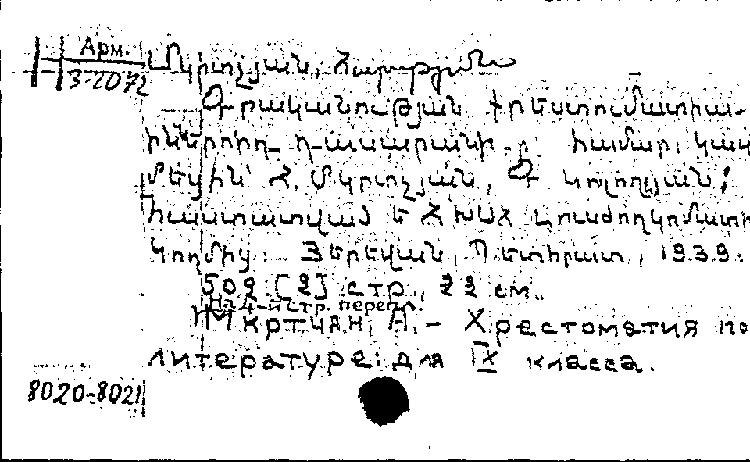 Арм.
3-2072
Մկրտչյան, Հարություն
Գրականության քրեստոմատիա-
իններորդ դասարանի համար, կազ
մեցին՝ Հ. Մկրտչյան, Գ.
հաստատված է ՀԽՍՀ Լուսժողկոմատի
կողմից. Յերեվան, Պետհրատ, 1939.
502 [2] стр., 22 см.
На 4-й стр. перепл.
Мкртчян, А. - Хрестоматия по
литературе для IX класса.
8020-8021